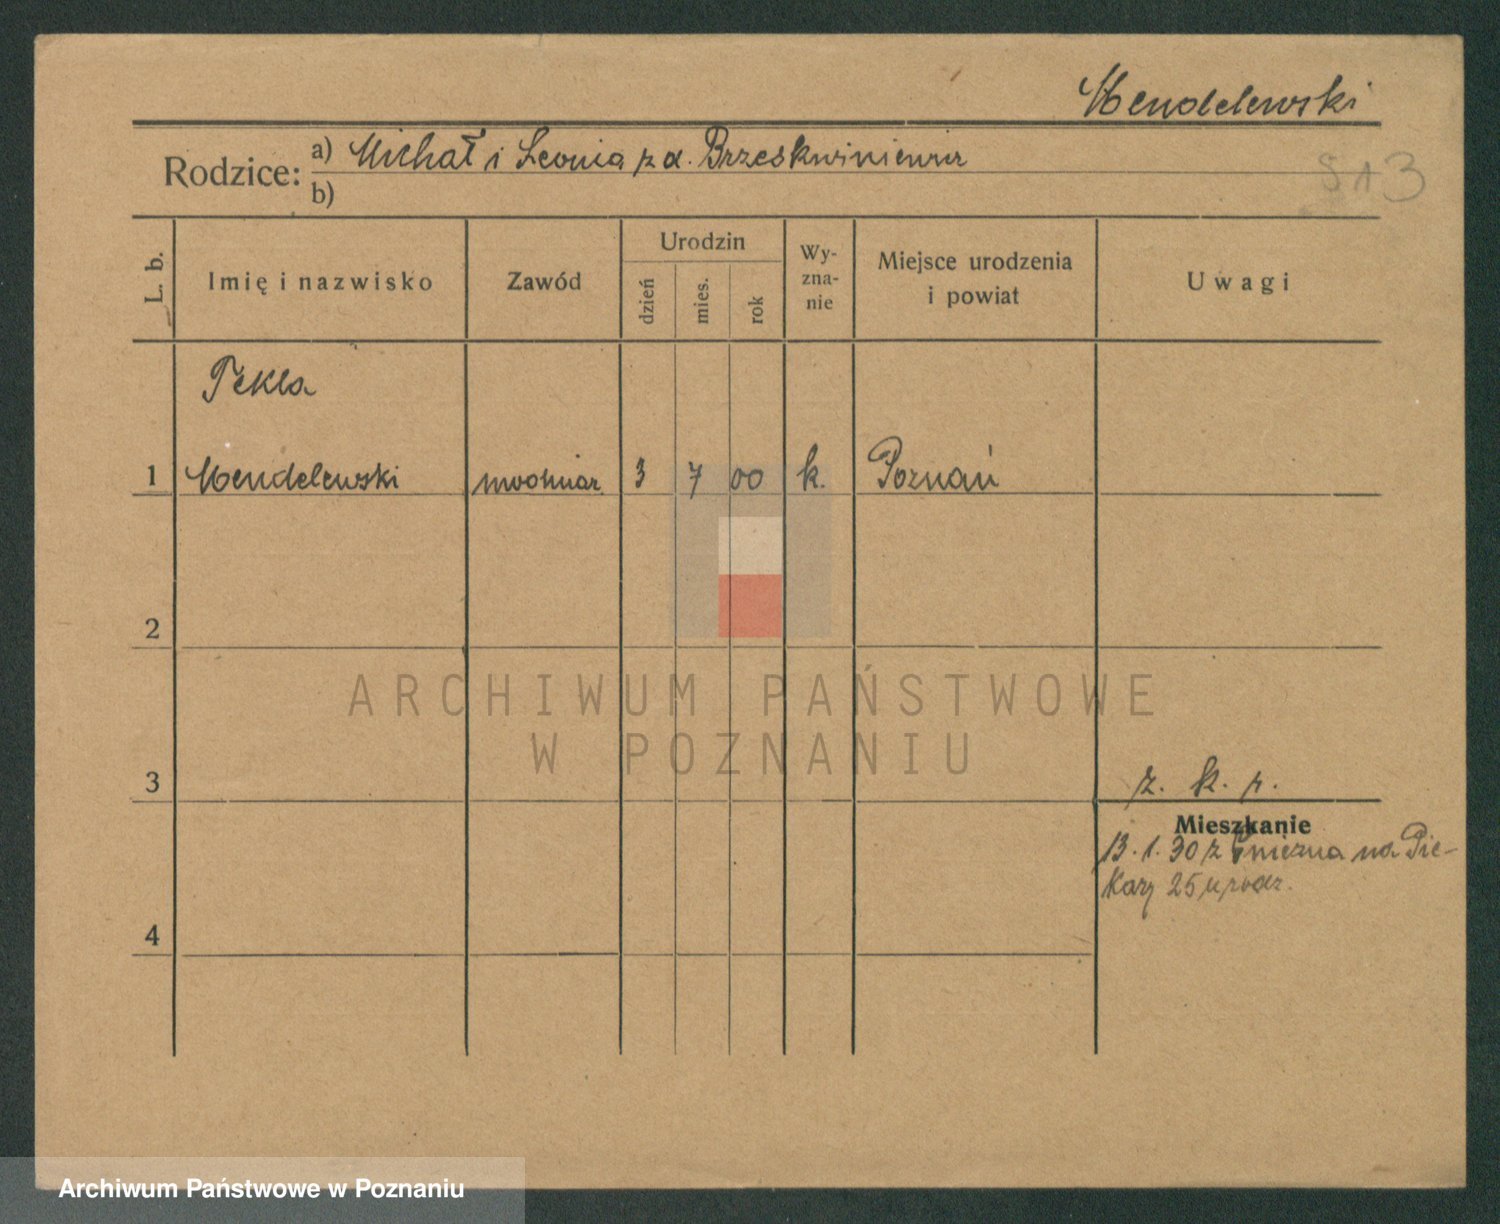 Mendelewski
Rodzice:
a) Michał i Leonia
b)
813
L. b.
Imię i nazwisko
Zawód
Urodzin
dzień
mies.
rok
Wy-
zna-
nie
Miejsce urodzenia
i powiat
Uwagi
Tekla
1 Mendelewski 3 7 00 k. Poznań
2
3
z. k. p.
4
Mieszkanie
13.1.30 z Gniezna na Pie-
kary 25
ARCHIWUM PAŃSTWOWE
W POZNANIU
Archiwum Państwowe w Poznaniu